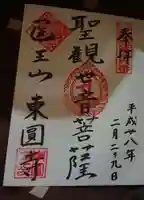 奉拝
平成廿八年
二月二十九日
聖観世音菩薩
医王山東圓寺